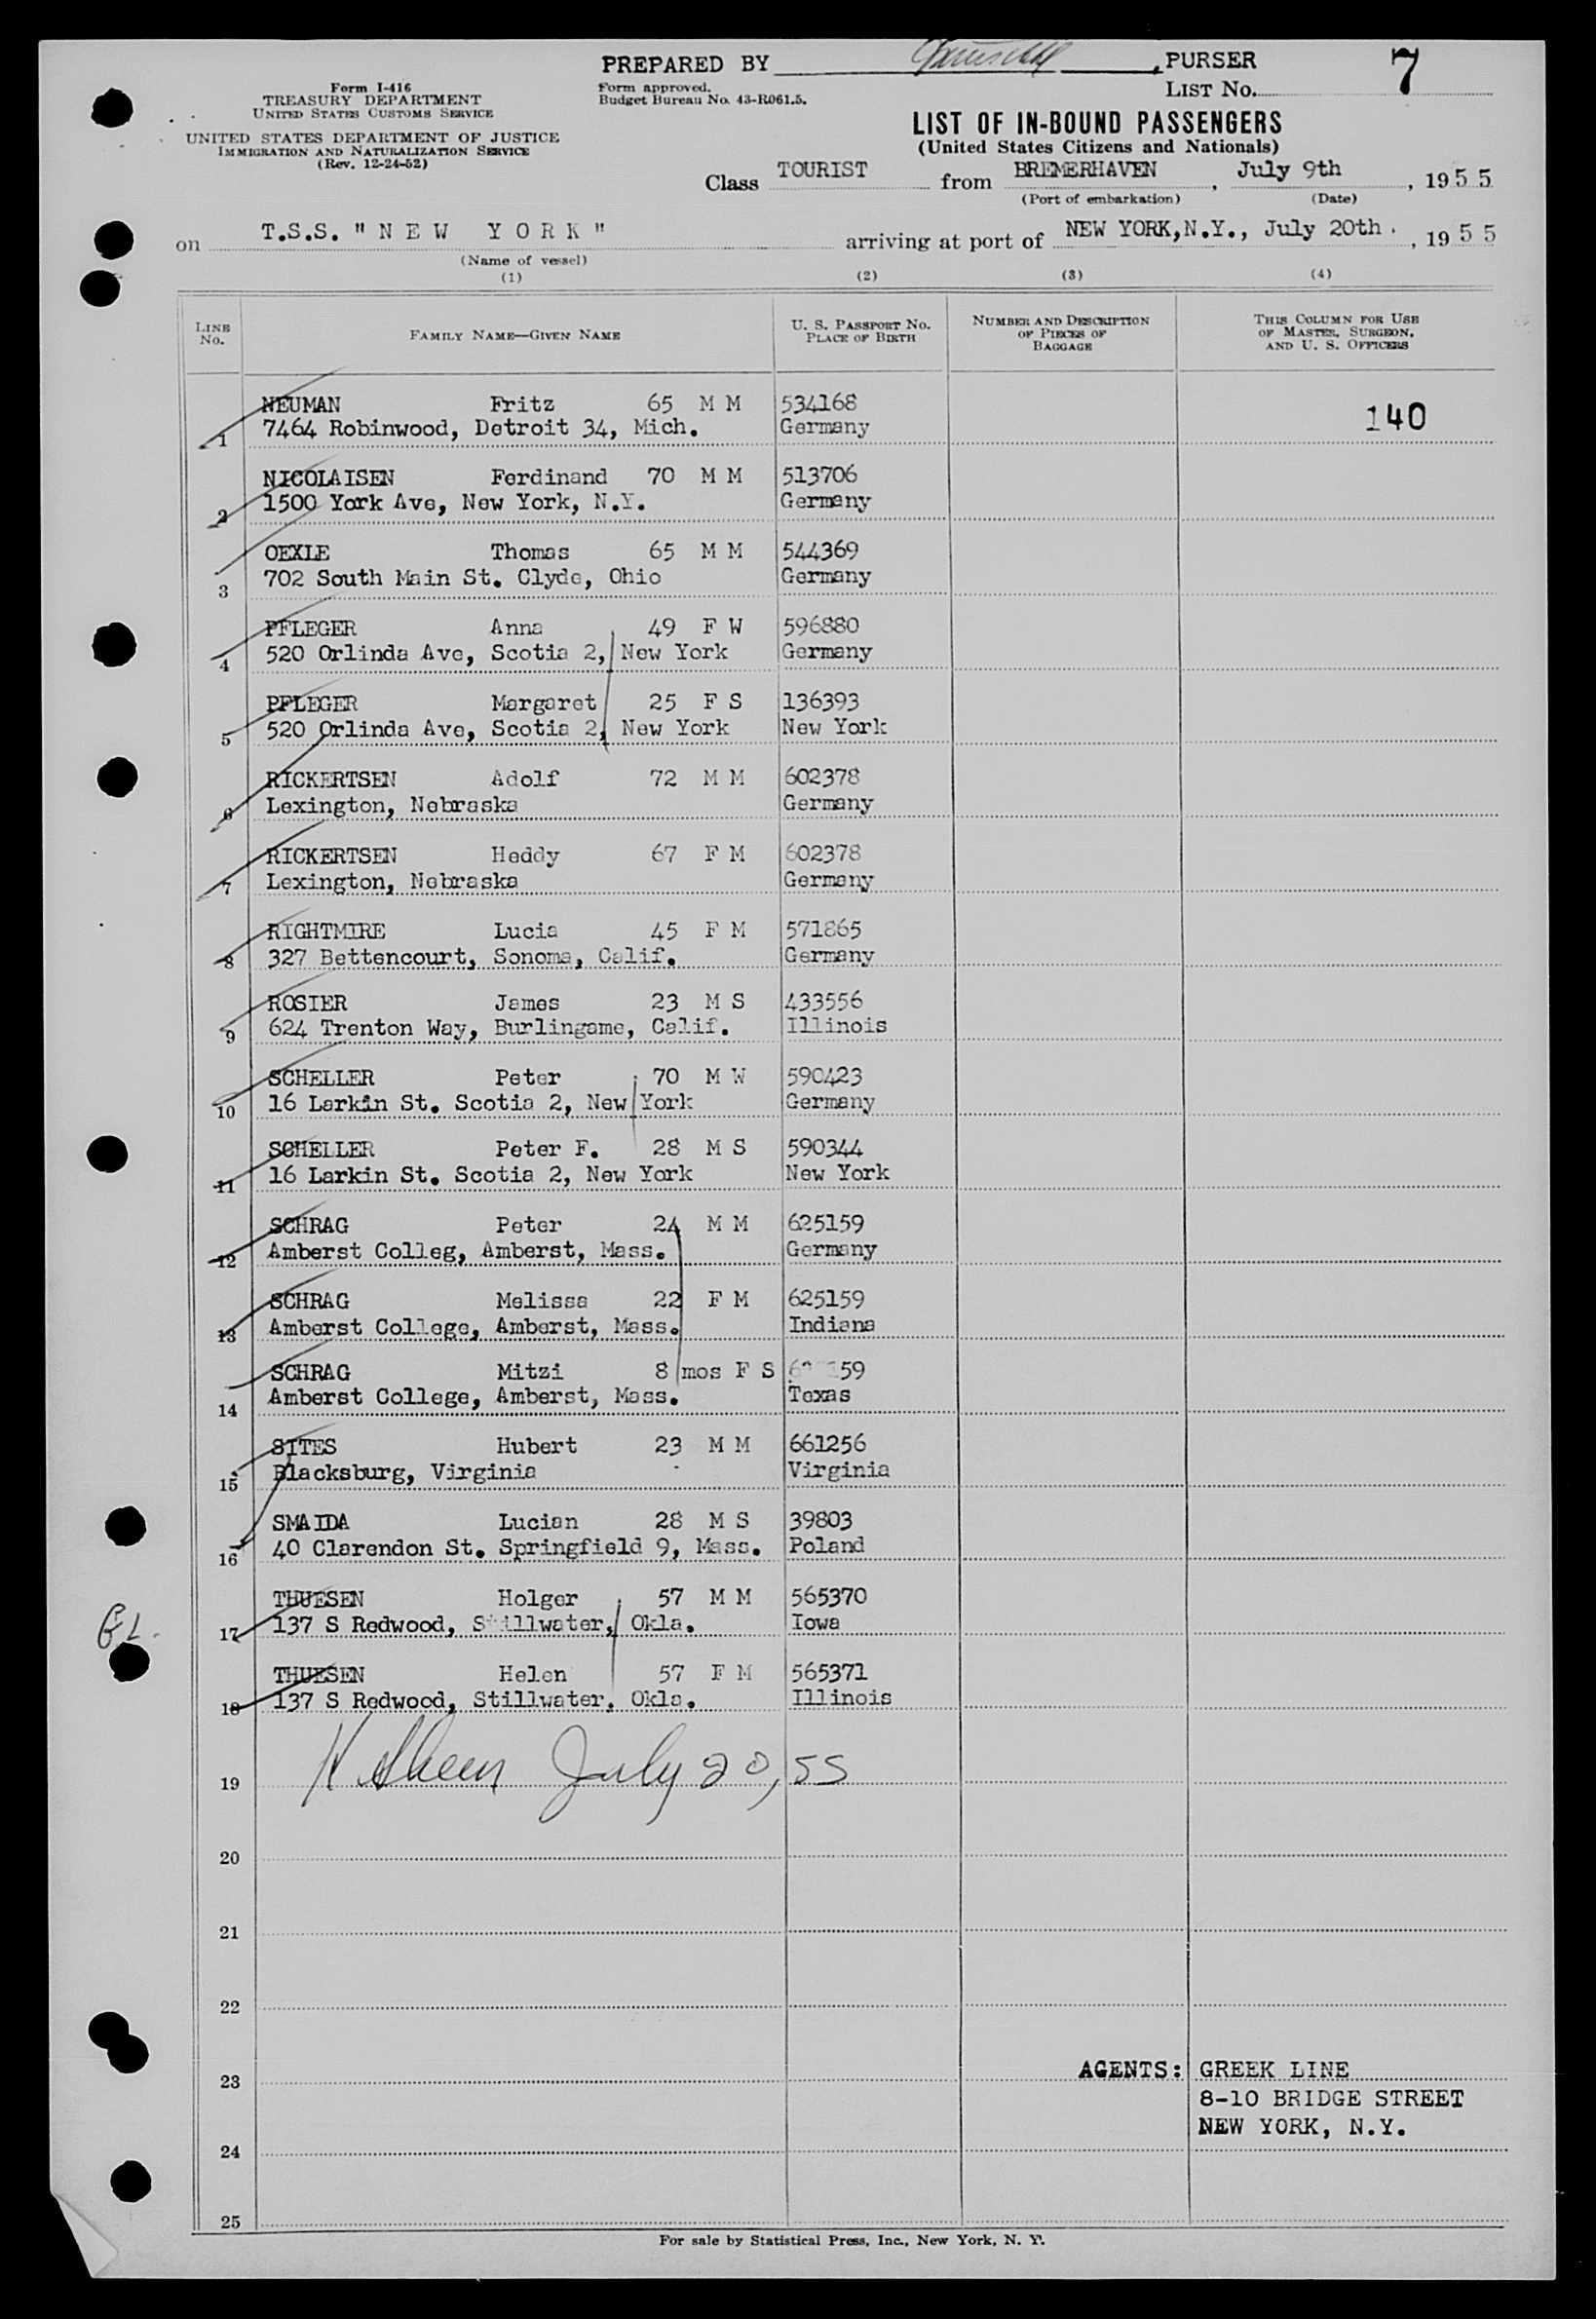 PREPARED BY , PURSER
7
Form I-416
TREASURY DEPARTMENT
UNITED STATES CUSTOMS SERVICE
Form approved.
Budget Bureau No. 43-R061.5.
LIST No.
UNITED STATES DEPARTMENT OF JUSTICE
IMMIGRATION AND NATURALIZATION SERVICE
(Rev. 12-24-52)
LIST OF IN-BOUND PASSENGERS
(United States Citizens and Nationals)
Class TOURIST from BREMERHAVEN, July 9th, 1955
(Port of embarkation) (Date)
on T.S.S. "NEW YORK" arriving at port of NEW YORK,N.Y., July 20th., 1955
(Name of vessel)
(1) (2) (3) (4)
LINE No. FAMILY NAME—GIVEN NAME U. S. PASSPORT NO. PLACE OF BIRTH NUMBER AND DESCRIPTION OF PIECES OF BAGGAGE THIS COLUMN FOR USE OF MASTER, SURGEON, AND U. S. OFFICERS
NEUMAN Fritz 65 M M 534168 140
1 7464 Robinwood, Detroit 34, Mich. Germany
NICOLAISEN Ferdinand 70 M M 513706
2 1500 York Ave, New York, N.Y. Germany
OEXLE Thomas 65 M M 544369
3 702 South Main St. Clyde, Ohio Germany
PFLEGER Anna 49 F W 596880
4 520 Orlinda Ave, Scotia 2, New York Germany
PFLEGER Margaret 25 F S 136393
5 520 Orlinda Ave, Scotia 2, New York New York
RICKERTSEN Adolf 72 M M 602378
6 Lexington, Nebraska Germany
RICKERTSEN Heddy 67 F M 602378
7 Lexington, Nebraska Germany
RIGHTMIRE Lucia 45 F M 571865
8 327 Bettencourt, Sonoma, Calif. Germany
ROSIER James 23 M S 433556
9 624 Trenton Way, Burlingame, Calif. Illinois
SCHELLER Peter 70 M W 590423
10 16 Larkin St. Scotia 2, New York Germany
SCHELLER Peter F. 28 M S 590344
11 16 Larkin St. Scotia 2, New York New York
SCHRAG Peter 24 M M 625159
12 Amberst Colleg, Amberst, Mass. Germany
SCHRAG Melissa 22 F M 625159
13 Amberst College, Amberst, Mass. Indiana
SCHRAG Mitzi 8 mos F S
14 Amberst College, Amberst, Mass. Texas
SITES Hubert 23 M M 661256
15 Blacksburg, Virginia Virginia
SMAIDA Lucian 28 M S 39803
16 40 Clarendon St. Springfield 9, Mass. Poland
THUESEN Holger 57 M M 565370
17 137 S Redwood, Stillwater, Okla. Iowa
THUESEN Helen 57 F M 565371
18 137 S Redwood, Stillwater, Okla. Illinois
19 July 20, 55
20
21
22
23 AGENTS: GREEK LINE
8-10 BRIDGE STREET
NEW YORK, N.Y.
24
25
For sale by Statistical Press, Inc., New York, N. Y.